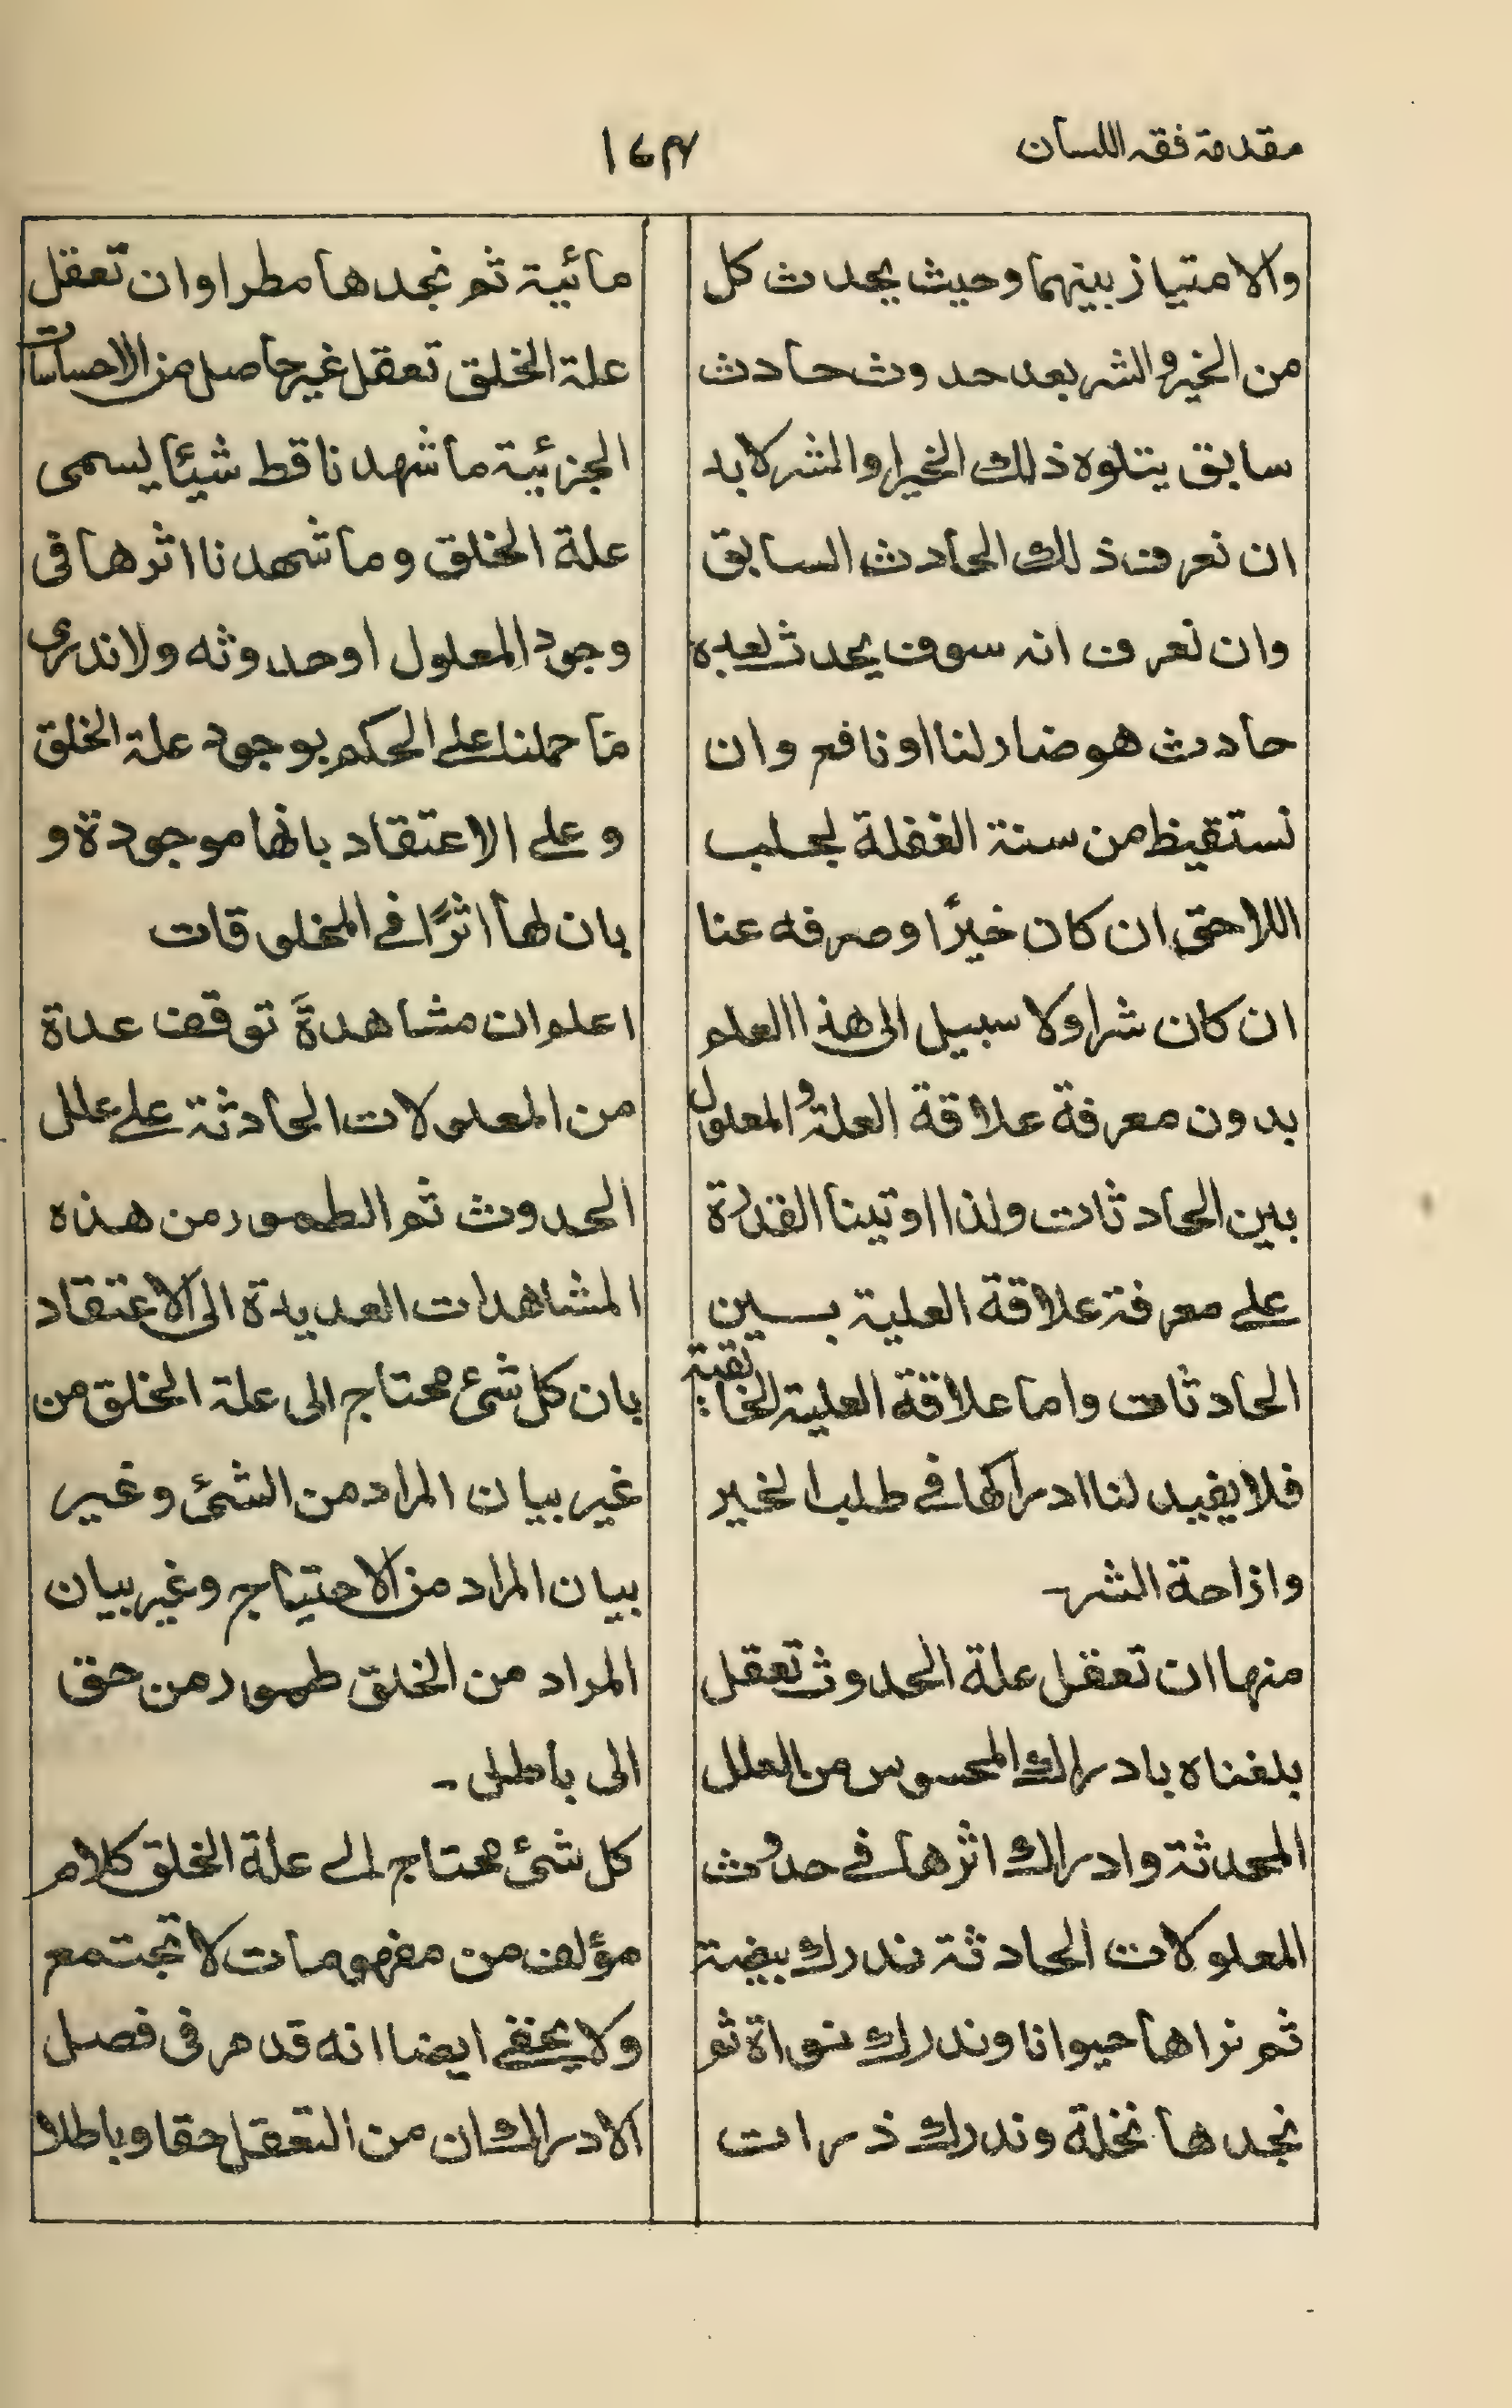 مقدمة فقه اللسان
١٧٤
والامتياز بينهما وحيث يحدث كل
من الخير والشر بعد حدوث حادث
سابق يتلوه ذلك الخير او الشر لا بد
ان نعرف ذلك الحادث السابق
وان نعرف انه سوف يحدث بعده
حادث هو ضار لنا او نافع وان
نستقيظ من سنة الغفلة لجلب
اللاحق ان كان خيرًا وصرفه عنا
ان كان شرا ولا سبيل الى هذا العلم
بدون معرفة علاقة العلة والمعلول
بين الحادثات ولذا اوتينا القدرة
على معرفة علاقة العلية بين
الحادثات واما علاقة العلية الخالقية
فلا يفيد لنا ادراكها في طلب الخير
وازاحة الشر۔
منها ان تعقل علة الحدوث تعقل
بلغناه بادراك المحسوس من العلل
المحدثة وادراك اثرها في حدوث
المعلولات الحادثة ندرك بيضة
ثم نراها حيوانا وندرك نواة ثم
نجدها نخلة وندرك ذرات
مائية ثم نجدها مطرا وان تعقل
علة الخلق تعقل غير حاصل من الاحساسات
الجزئية ما شهدنا قط شيئا يسمى
علة الخلق وما شهدنا اثرها فى
وجود المعلول او حدوثه ولا ندرى
ما حملنا على الحكم بوجود علة الخلق
وعلى الاعتقاد بانها موجودة و
بان لها اثرًا في المخلوقات
اعلم ان مشاهدة توقف عدة
من المعلولات الحادثة على علل
الحدوث ثم الطمور من هذه
المشاهدات العديدة الى الاعتقاد
بان كل شئ محتاج الى علة الخلق من
غير بيان المراد من الشئ وغير
بيان المراد من الاحتياج وغير بيان
المراد من الخلق طمور من حق
الى باطل۔
كل شئ محتاج الى علة الخلق كلام
مؤلف من مفهومات لا تجتمع
ولا يخفى ايضا انه قد مر فى فصل
الادراك ان من التعقل حقا وباطلا